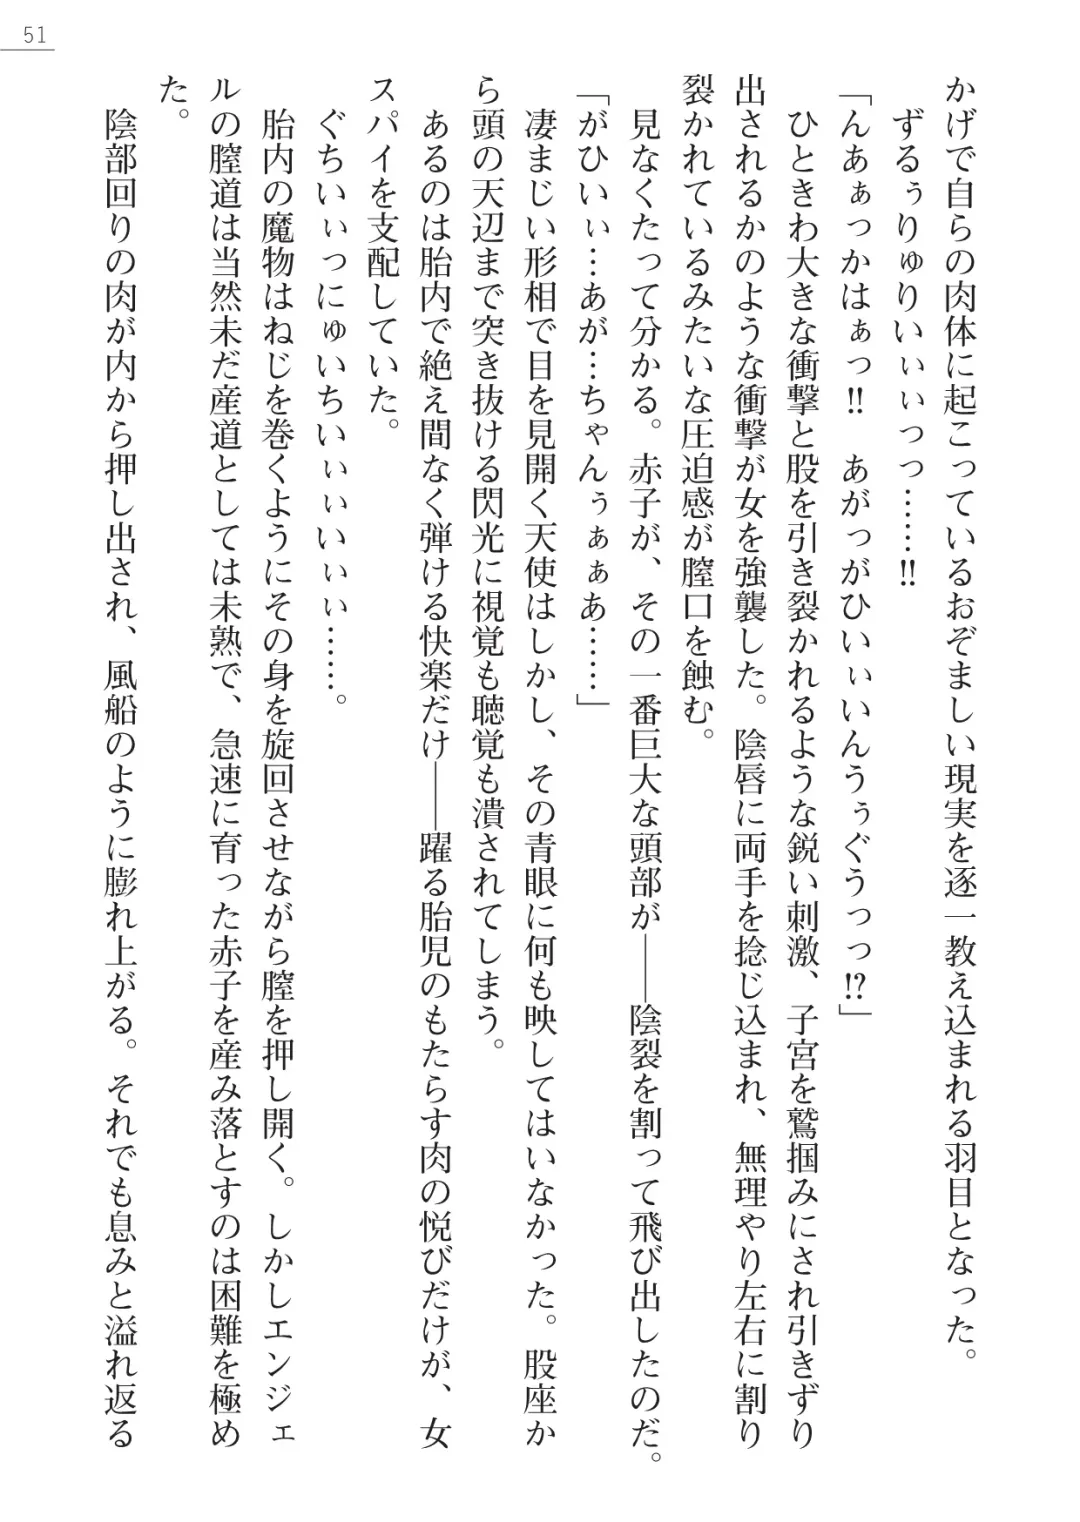 51
かげで自らの肉体に起こっているおぞましい現実を逐一教え込まれる羽目となった。
ずるぅりゅりいぃぃっっ……‼
「んあぁっかはぁっ‼　あがっがひいぃいんうぅぐうっっ⁉」
ひときわ大きな衝撃と股を引き裂かれるような鋭い刺激、子宮を鷲掴みにされ引きずり
出されるかのような衝撃が女を強襲した。陰唇に両手を捻じ込まれ、無理やり左右に割り
裂かれているみたいな圧迫感が膣口を蝕む。
見なくたって分かる。赤子が、その一番巨大な頭部が――陰裂を割って飛び出したのだ。
「がひいぃ…あが…ちゃんぅぁぁあ……」
凄まじい形相で目を見開く天使はしかし、その青眼に何も映してはいなかった。股座か
ら頭の天辺まで突き抜ける閃光に視覚も聴覚も潰されてしまう。
あるのは胎内で絶え間なく弾ける快楽だけ――躍る胎児のもたらす肉の悦びだけが、女
スパイを支配していた。
ぐちいぃっにゅいちいぃぃいぃぃ……。
胎内の魔物はねじを巻くようにその身を旋回させながら膣を押し開く。しかしエンジェ
ルの膣道は当然未だ産道としては未熟で、急速に育った赤子を産み落とすのは困難を極め
た。
陰部回りの肉が内から押し出され、風船のように膨れ上がる。それでも息みと溢れ返る